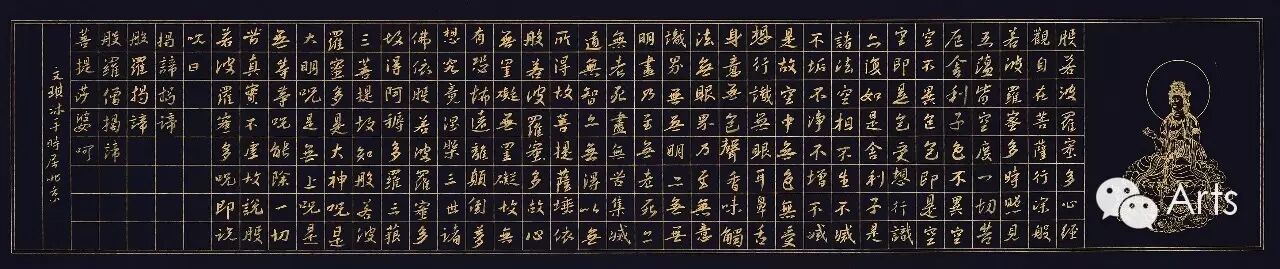 般若波羅蜜多心經
觀自在菩薩行深般
若波羅蜜多時照見
五蘊皆空度一切苦
厄舍利子色不異空
空不異色色即是空
空即是色受想行識
亦復如是舍利子是
諸法空相不生不滅
不垢不淨不增不減
是故空中無色無受
想行識無眼耳鼻舌
身意無色聲香味觸
法無眼界乃至無意
識界無無明亦無無
明盡乃至無老死亦
無老死盡無苦集滅
道無智亦無得以無
所得故菩提薩埵依
般若波羅蜜多故心
無罣礙無罣礙故無
有恐怖遠離顛倒夢
想究竟涅槃三世諸
佛依般若波羅蜜多
故得阿耨多羅三藐
三菩提故知般若波
羅蜜多是大神呪是
大明呪是無上呪是
無等等呪能除一切
苦真實不虛故說般
若波羅蜜多呪即說
呪曰
揭諦揭諦
般羅揭諦
般羅僧揭諦
菩提莎婆呵
文琪沐手時居北京
Arts